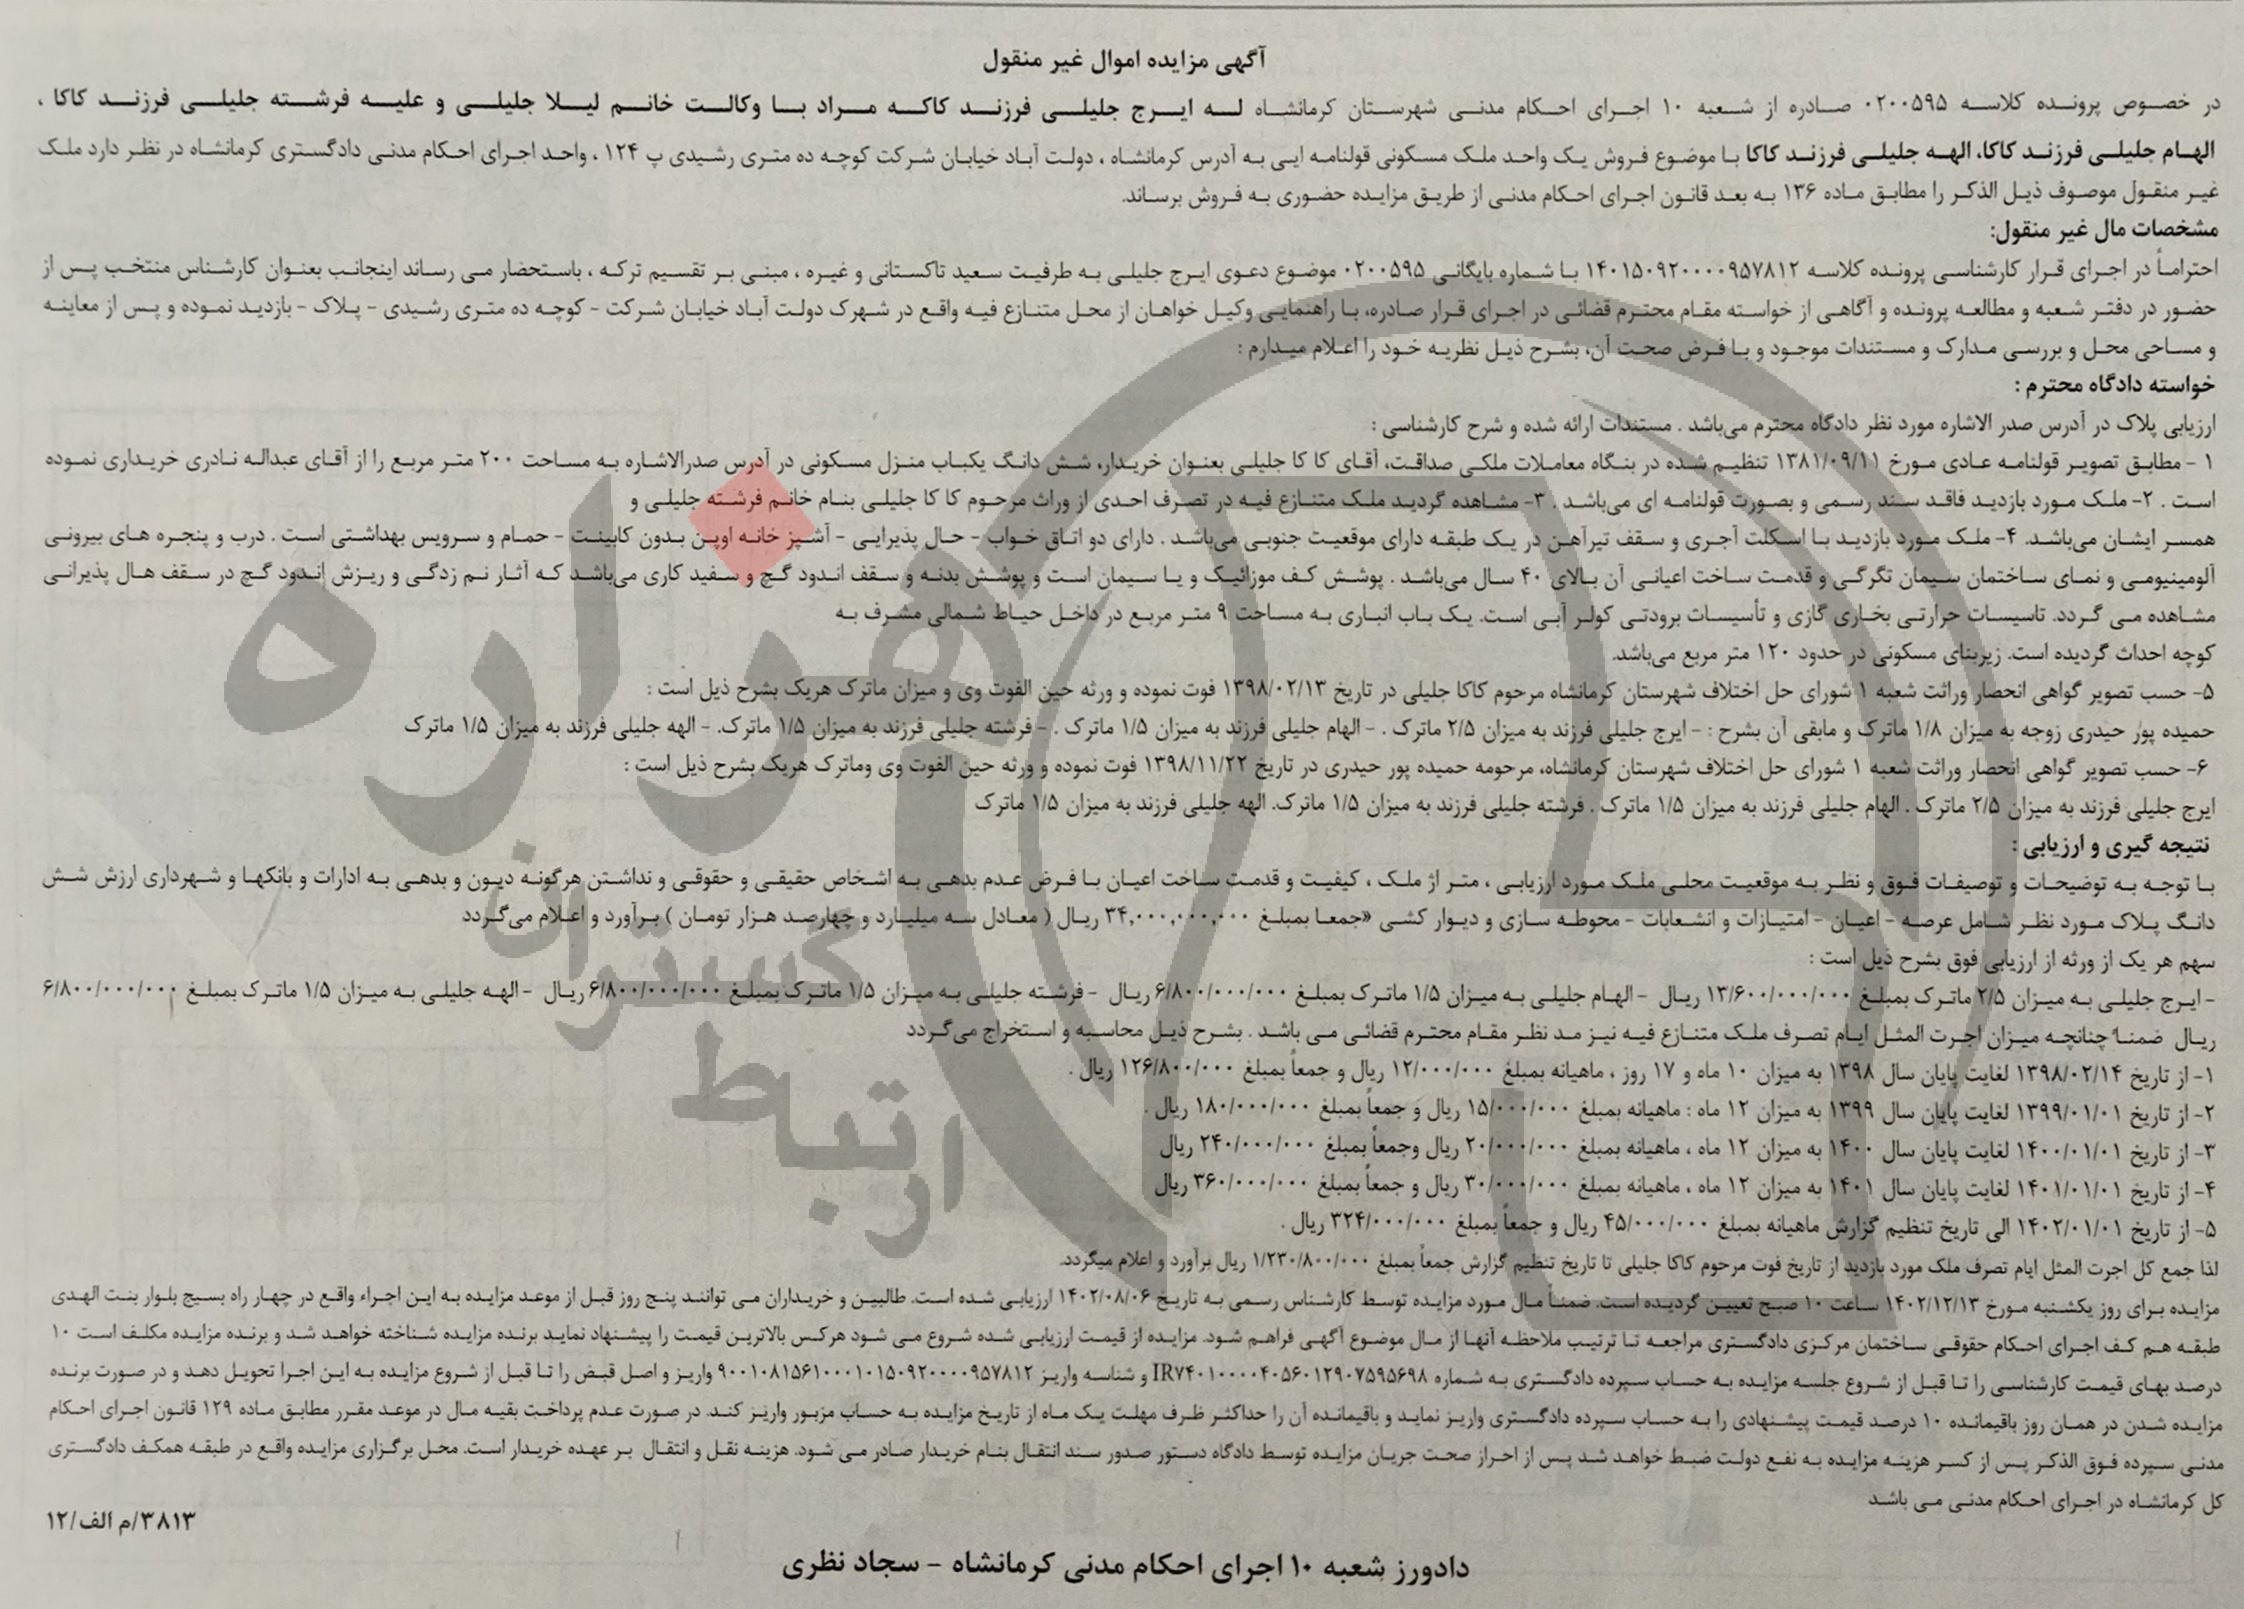 آگهی مزایده اموال غیر منقول
در خصوص پرونده کلاسه ۰۲۰۰۵۹۵ صادره از شعبه ۱۰ اجرای احکام مدنی شهرستان کرمانشاه له ایرج جلیلی فرزند کاکه مراد با وکالت خانم لیلا جلیلی و علیه فرشته جلیلی فرزند کاکا ،
الهام جلیلی فرزند کاکا، الهه جلیلی فرزند کاکا با موضوع فروش یک واحد ملک مسکونی قولنامه ایی به آدرس کرمانشاه ، دولت آباد خیابان شرکت کوچه ده متری رشیدی پ ۱۲۴ ، واحد اجرای احکام مدنی دادگستری کرمانشاه در نظر دارد ملک
غیر منقول موصوف ذیل الذکر را مطابق ماده ۱۳۶ به بعد قانون اجرای احکام مدنی از طریق مزایده حضوری به فروش برساند.
مشخصات مال غیر منقول:
احتراماً در اجرای قرار کارشناسی پرونده کلاسه ۱۴۰۱۵۰۹۲۰۰۰۰۹۵۷۸۱۲ با شماره بایگانی ۰۲۰۰۵۹۵ موضوع دعوی ایرج جلیلی به طرفیت سعید تاکستانی و غیره ، مبنی بر تقسیم ترکه ، باستحضار می رساند اینجانب بعنوان کارشناس منتخب پس از
حضور در دفتر شعبه و مطالعه پرونده و آگاهی از خواسته مقام محترم قضائی در اجرای قرار صادره، با راهنمایی وکیل خواهان از محل متنازع فیه واقع در شهرک دولت آباد خیابان شرکت - کوچه ده متری رشیدی - پلاک - بازدید نموده و پس از معاینه
و مساحی محل و بررسی مدارک و مستندات موجود و با فرض صحت آن، بشرح ذیل نظریه خود را اعلام میدارم :
خواسته دادگاه محترم :
ارزیابی پلاک در آدرس صدر الاشاره مورد نظر دادگاه محترم می‌باشد . مستندات ارائه شده و شرح کارشناسی :
۱ - مطابق تصویر قولنامه عادی مورخ ۱۳۸۱/۰۹/۱۱ تنظیم شده در بنگاه معاملات ملکی صداقت، آقای کا کا جلیلی بعنوان خریدار، شش دانگ یکباب منزل مسکونی در آدرس صدرالاشاره به مساحت ۲۰۰ متر مربع را از آقای عبداله نادری خریداری نموده
است . ۲- ملک مورد بازدید فاقد سند رسمی و بصورت قولنامه ای می‌باشد . ۳- مشاهده گردید ملک متنازع فیه در تصرف احدی از وراث مرحوم کا کا جلیلی بنام خانم فرشته جلیلی و
همسر ایشان می‌باشد. ۴- ملک مورد بازدید با اسکلت آجری و سقف تیرآهن در یک طبقه دارای موقعیت جنوبی می‌باشد . دارای دو اتاق خواب - حال پذیرایی - آشپز خانه اوپن بدون کابینت - حمام و سرویس بهداشتی است . درب و پنجره های بیرونی
آلومینیومی و نمای ساختمان سیمان تگرگی و قدمت ساخت اعیانی آن بالای ۴۰ سال می‌باشد . پوشش کف موزائیک و یا سیمان است و پوشش بدنه و سقف اندود گچ و سفید کاری می‌باشد که آثار نم زدگی و ریزش اندود گچ در سقف هال پذیرانی
مشاهده می گردد. تاسیسات حرارتی بخاری گازی و تأسیسات برودتی کولر آبی است. یک باب انباری به مساحت ۹ متر مربع در داخل حیاط شمالی مشرف به
کوچه احداث گردیده است. زیربنای مسکونی در حدود ۱۲۰ متر مربع می‌باشد.
۵- حسب تصویر گواهی انحصار وراثت شعبه ۱ شورای حل اختلاف شهرستان کرمانشاه مرحوم کاکا جلیلی در تاریخ ۱۳۹۸/۰۲/۱۳ فوت نموده و ورثه حین الفوت وی و میزان ماترک هریک بشرح ذیل است :
حمیده پور حیدری زوجه به میزان ۱/۸ ماترک و مابقی آن بشرح : - ایرج جلیلی فرزند به میزان ۲/۵ ماترک . - الهام جلیلی فرزند به میزان ۱/۵ ماترک . - فرشته جلیلی فرزند به میزان ۱/۵ ماترک. - الهه جلیلی فرزند به میزان ۱/۵ ماترک
۶- حسب تصویر گواهی انحصار وراثت شعبه ۱ شورای حل اختلاف شهرستان کرمانشاه، مرحومه حمیده پور حیدری در تاریخ ۱۳۹۸/۱۱/۲۲ فوت نموده و ورثه حین الفوت وی وماترک هریک بشرح ذیل است :
ایرج جلیلی فرزند به میزان ۲/۵ ماترک . الهام جلیلی فرزند به میزان ۱/۵ ماترک . فرشته جلیلی فرزند به میزان ۱/۵ ماترک. الهه جلیلی فرزند به میزان ۱/۵ ماترک
نتیجه گیری و ارزیابی :
با توجه به توضیحات و توصیفات فوق و نظر به موقعیت محلی ملک مورد ارزیابی ، متر اژ ملک ، کیفیت و قدمت ساخت اعیان با فرض عدم بدهی به اشخاص حقیقی و حقوقی و نداشتن هرگونه دیون و بدهی به ادارات و بانکها و شهرداری ارزش شش
دانگ پلاک مورد نظر شامل عرصه - اعیان - امتیازات و انشعابات - محوطه سازی و دیوار کشی «جمعا بمبلغ ۳۴,۰۰۰,۰۰۰,۰۰۰ ریال ( معادل سه میلیارد و چهارصد هزار تومان ) برآورد و اعلام می‌گردد
سهم هر یک از ورثه از ارزیابی فوق بشرح ذیل است :
- ایرج جلیلی به میزان ۲/۵ ماترک بمبلغ ۱۳/۶۰۰/۰۰۰/۰۰۰ ریال - الهام جلیلی به میزان ۱/۵ ماترک بمبلغ ۶/۸۰۰/۰۰۰/۰۰۰ ریال - فرشته جلیلی به میزان ۱/۵ ماترک بمبلغ ۶/۸۰۰/۰۰۰/۰۰۰ ریال - الهه جلیلی به میزان ۱/۵ ماترک بمبلغ ۶/۸۰۰/۰۰۰/۰۰۰
ریال ضمناً چنانچه میزان اجرت المثل ایام تصرف ملک متنازع فیه نیز مد نظر مقام محترم قضائی می باشد . بشرح ذیل محاسبه و استخراج می‌گردد
۱- از تاریخ ۱۳۹۸/۰۲/۱۴ لغایت پایان سال ۱۳۹۸ به میزان ۱۰ ماه و ۱۷ روز ، ماهیانه بمبلغ ۱۲/۰۰۰/۰۰۰ ریال و جمعاً بمبلغ ۱۲۶/۸۰۰/۰۰۰ ریال .
۲- از تاریخ ۱۳۹۹/۰۱/۰۱ لغایت پایان سال ۱۳۹۹ به میزان ۱۲ ماه : ماهیانه بمبلغ ۱۵/۰۰۰/۰۰۰ ریال و جمعاً بمبلغ ۱۸۰/۰۰۰/۰۰۰ ریال .
۳- از تاریخ ۱۴۰۰/۰۱/۰۱ لغایت پایان سال ۱۴۰۰ به میزان ۱۲ ماه ، ماهیانه بمبلغ ۲۰/۰۰۰/۰۰۰ ریال وجمعاً بمبلغ ۲۴۰/۰۰۰/۰۰۰ ریال
۴- از تاریخ ۱۴۰۱/۰۱/۰۱ لغایت پایان سال ۱۴۰۱ به میزان ۱۲ ماه ، ماهیانه بمبلغ ۳۰/۰۰۰/۰۰۰ ریال و جمعاً بمبلغ ۳۶۰/۰۰۰/۰۰۰ ریال
۵- از تاریخ ۱۴۰۲/۰۱/۰۱ الی تاریخ تنظیم گزارش ماهیانه بمبلغ ۴۵/۰۰۰/۰۰۰ ریال و جمعاً بمبلغ ۳۲۴/۰۰۰/۰۰۰ ریال .
لذا جمع کل اجرت المثل ایام تصرف ملک مورد بازدید از تاریخ فوت مرحوم کاکا جلیلی تا تاریخ تنظیم گزارش جمعاً بمبلغ ۱/۲۳۰/۸۰۰/۰۰۰ ریال برآورد و اعلام میگردد.
مزایده برای روز یکشنبه مورخ ۱۴۰۲/۱۲/۱۳ ساعت ۱۰ صبح تعیین گردیده است. ضمناً مال مورد مزایده توسط کارشناس رسمی به تاریخ ۱۴۰۲/۰۸/۰۶ ارزیابی شده است. طالبین و خریداران می توانند پنج روز قبل از موعد مزایده به این اجراء واقع در چهار راه بسیج بلوار بنت الهدی
طبقه هم کف اجرای احکام حقوقی ساختمان مرکزی دادگستری مراجعه تا ترتیب ملاحظه آنها از مال موضوع آگهی فراهم شود. مزایده از قیمت ارزیابی شده شروع می شود هرکس بالاترین قیمت را پیشنهاد نماید برنده مزایده شناخته خواهد شد و برنده مزایده مکلف است ۱۰
درصد بهای قیمت کارشناسی را تا قبل از شروع جلسه مزایده به حساب سپرده دادگستری به شماره IR۷۴۰۱۰۰۰۰۴۰۵۶۰۱۲۹۰۷۵۹۵۶۹۸ و شناسه واریز ۹۰۰۱۰۸۱۵۶۱۰۰۰۱۰۱۵۰۹۲۰۰۰۰۹۵۷۸۱۲ واریز و اصل قبض را تا قبل از شروع مزایده به این اجرا تحویل دهد و در صورت برنده
مزایده شدن در همان روز باقیمانده ۱۰ درصد قیمت پیشنهادی را به حساب سپرده دادگستری واریز نماید و باقیمانده آن را حداکثر ظرف مهلت یک ماه از تاریخ مزایده به حساب مزبور واریز کند. در صورت عدم پرداخت بقیه مال در موعد مقرر مطابق ماده ۱۲۹ قانون اجرای احکام
مدنی سپرده فوق الذکر پس از کسر هزینه مزایده به نفع دولت ضبط خواهد شد پس از احراز صحت جریان مزایده توسط دادگاه دستور صدور سند انتقال بنام خریدار صادر می شود. هزینه نقل و انتقال بر عهده خریدار است. محل برگزاری مزایده واقع در طبقه همکف دادگستری
کل کرمانشاه در اجرای احکام مدنی می باشد
۳۸۱۳/م الف/۱۲
دادورز شعبه ۱۰ اجرای احکام مدنی کرمانشاه - سجاد نظری
هزاره
گستران
ارتباط